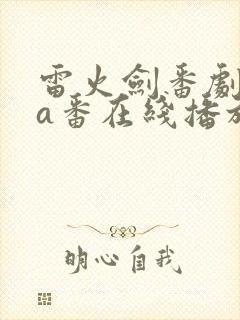 雷火劍番劇
a番在綫播放
明心自我